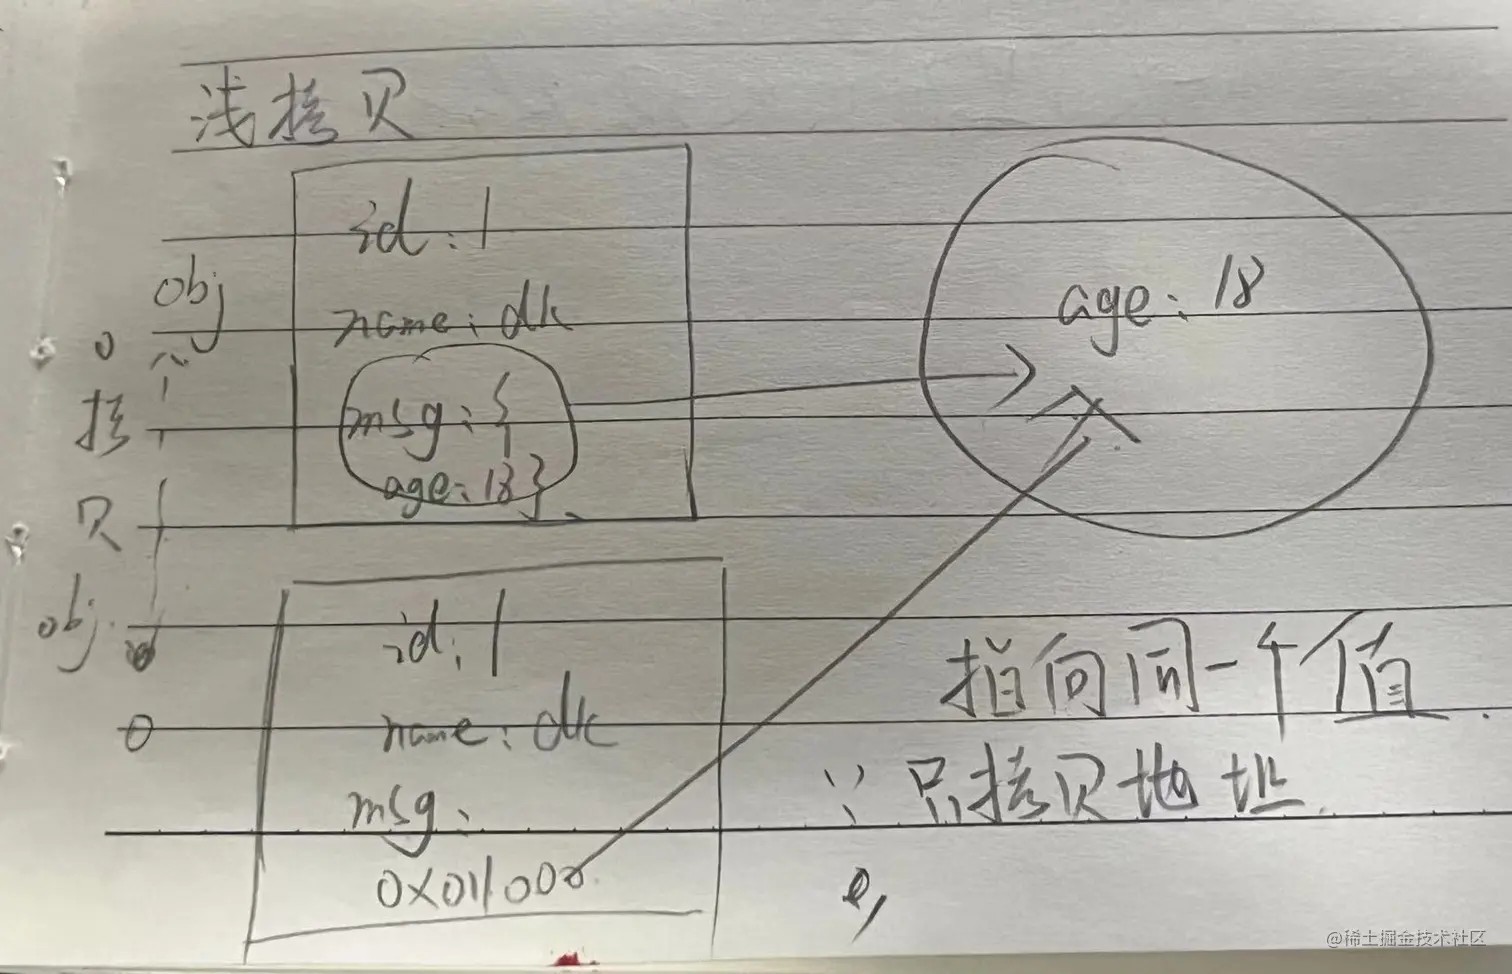 浅拷贝
obj
id:1
name:dk
msg:{
age:18}
age:18
o
拷
贝
obj
o
id:1
name:dk
msg:
0x011000
指向同一个值.
∵只拷贝地址.
@稀土掘金技术社区